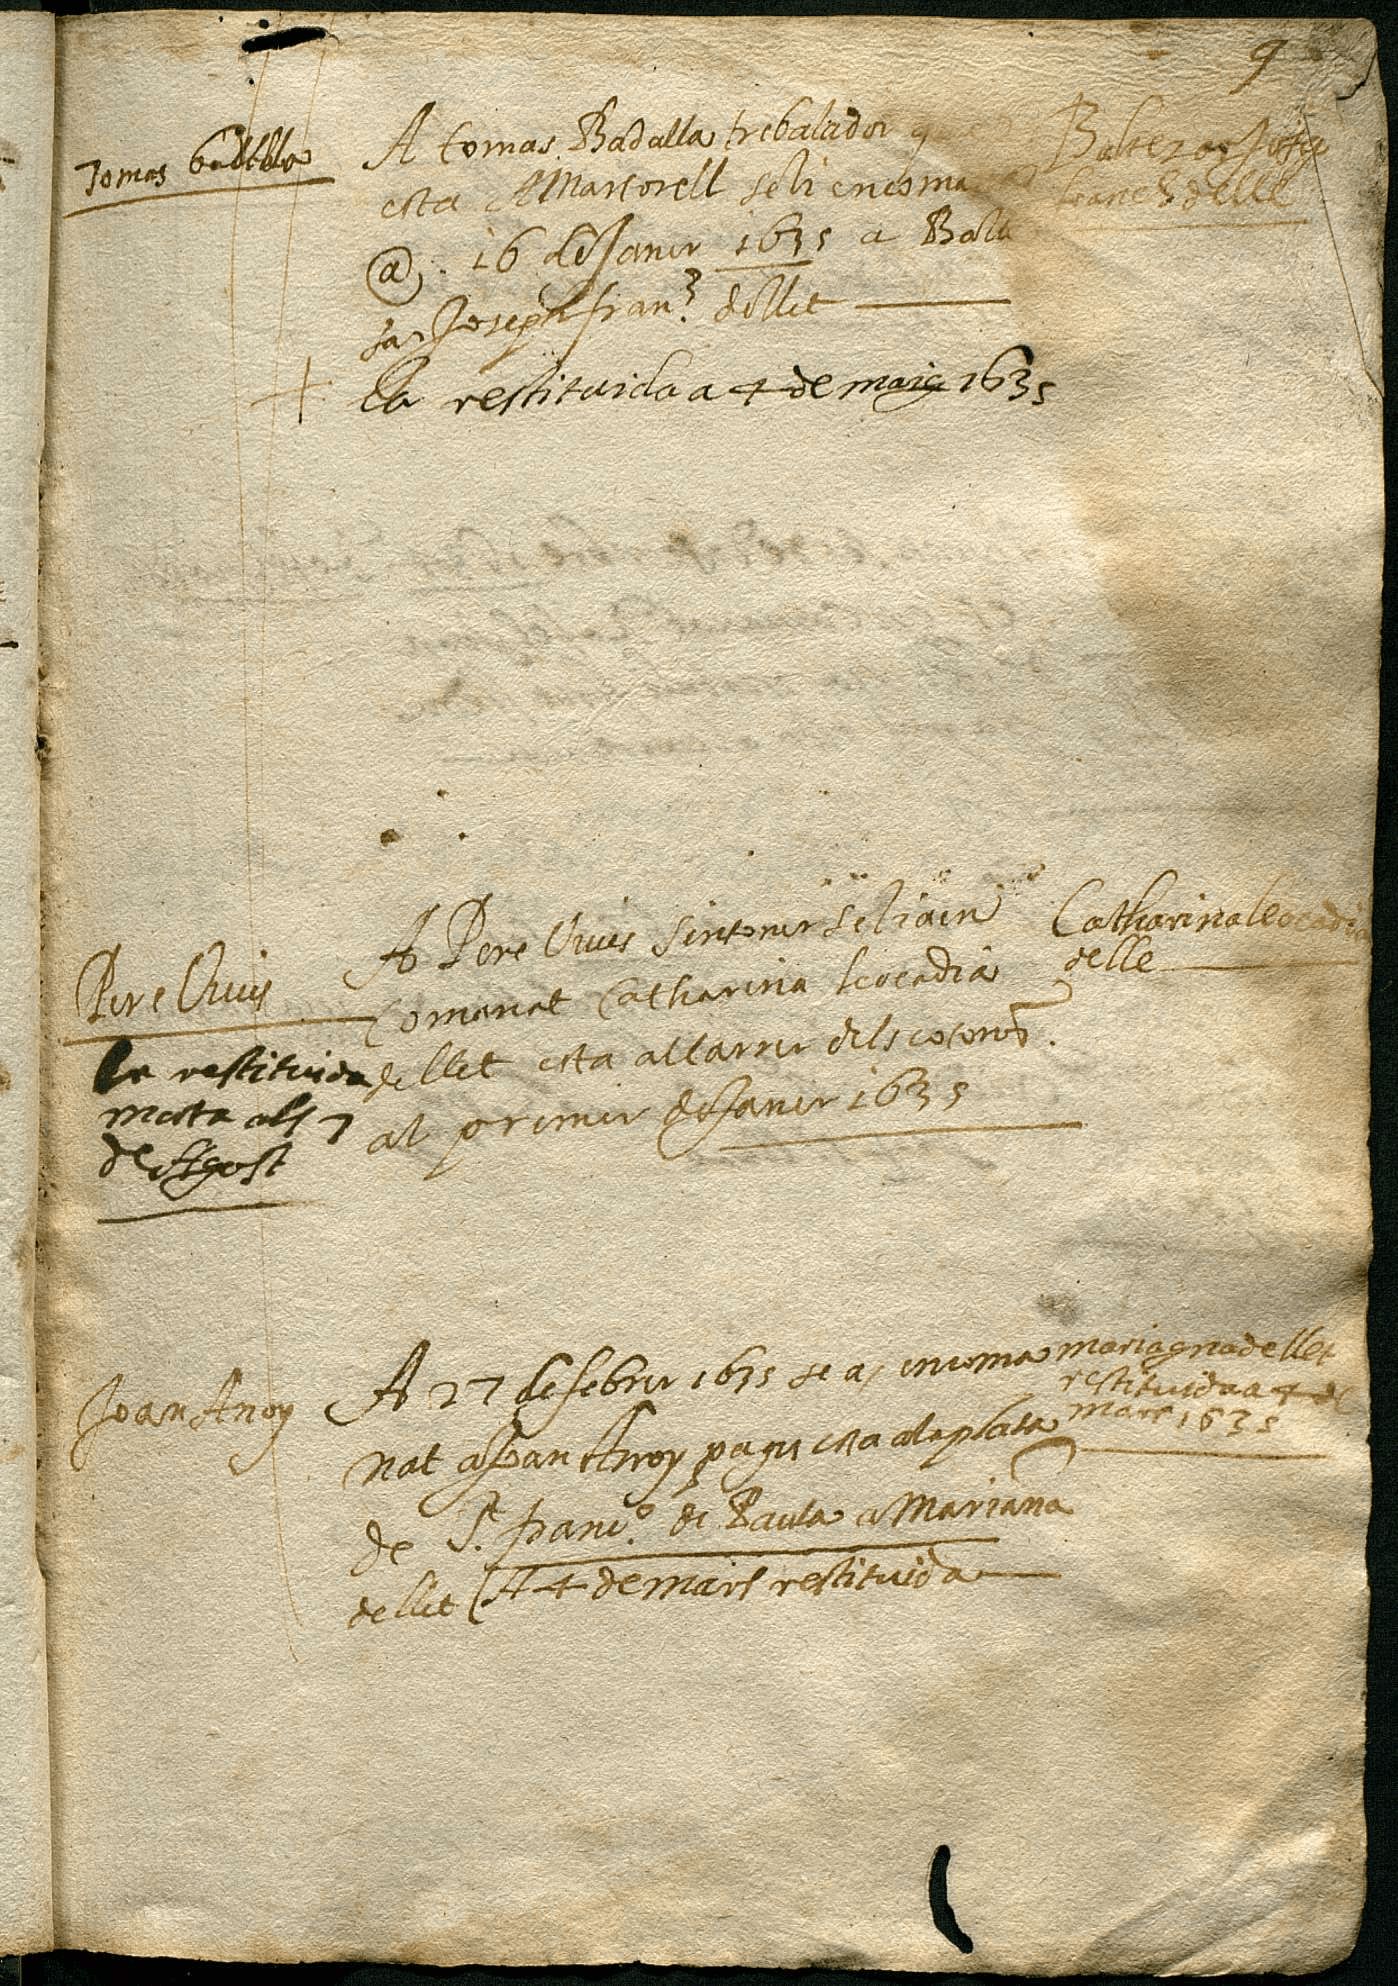 9
Tomas badella
A tomas Badalla trebalador
esta A Martorell se li encoma
@ . 16 de Janer 1635 a Balt
sar Joseph fran.ch dellet
la restituida a 4 de maig 1635
Baltezar Joseph
franch delle
Pere Vives
la restituida
morta als 7
de Agost
A Pere Vives sintorer se li a en
comanat Catharina leocadia
dellet esta al carrer dels cotoners.
al primer de Janer 1635
Catharina leocadia
delle
Joan Anoy
A 27 de febrer 1635 se a, encoma
nat a Joan Anoy pages esta a la plata
de St. franc.o de Paula a Mariana
dellet (A 4 de mars restituida
mariagna dellet
restituida a 4 de
mars 1635